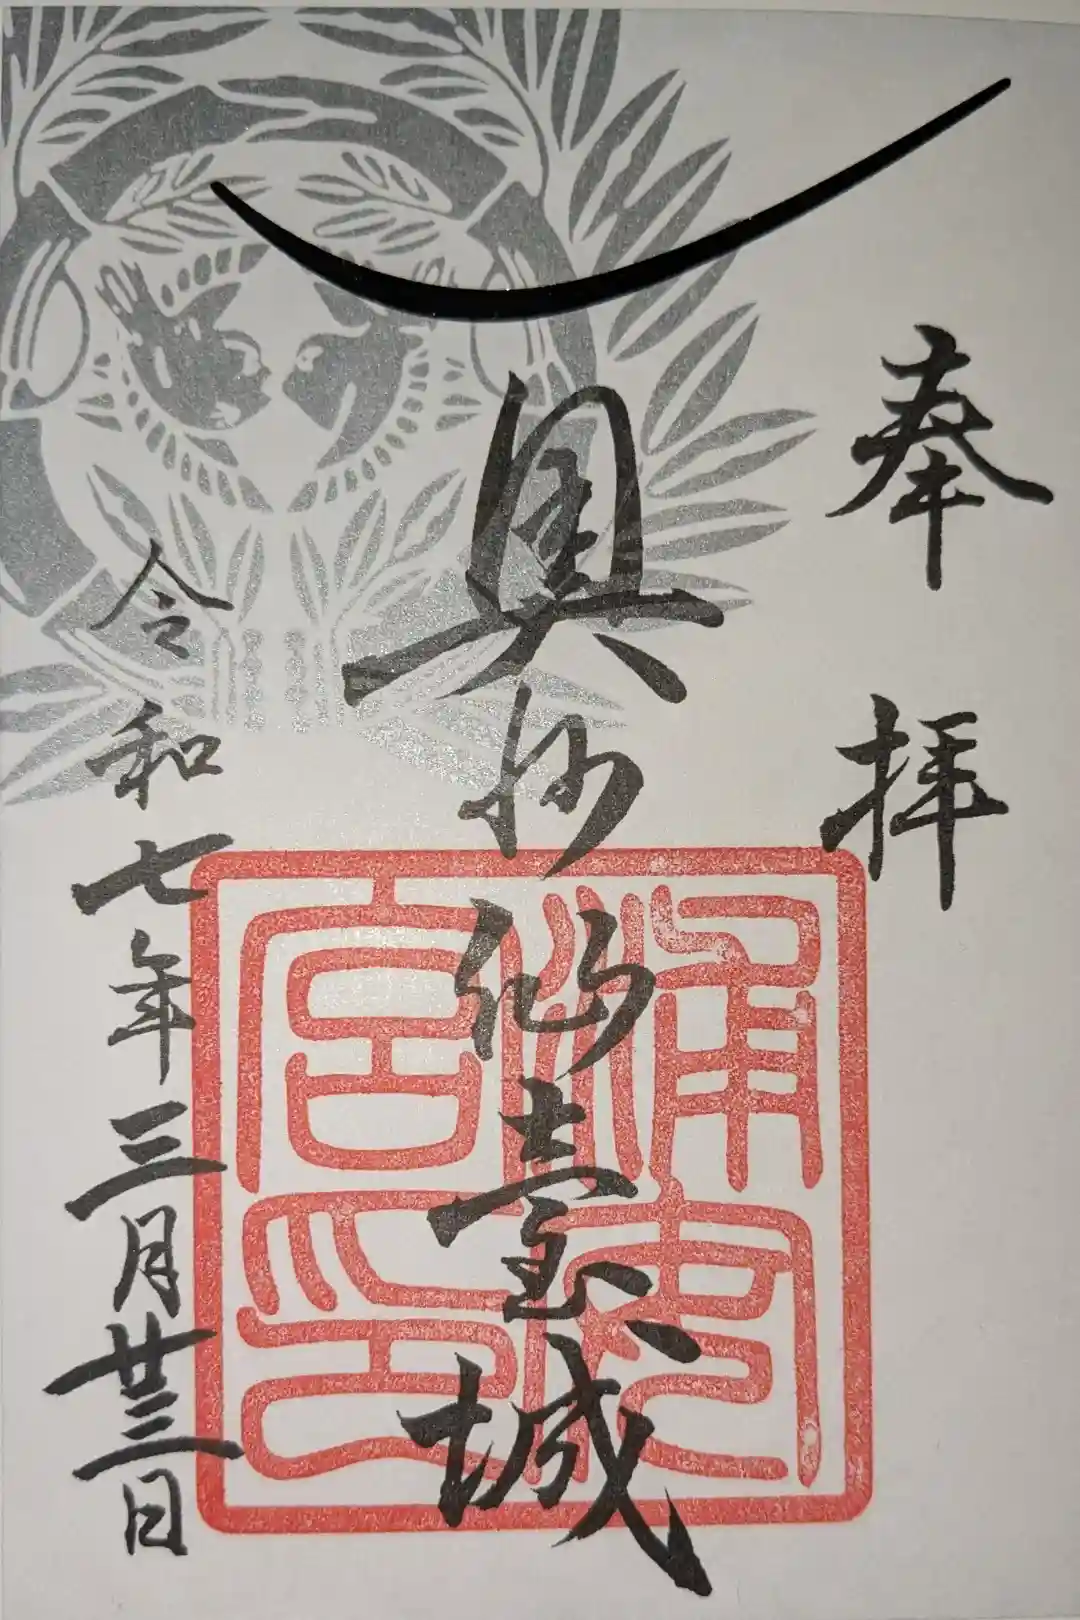 奉拝
奥州仙臺城
浦安
宮印
令和七年三月廿三日